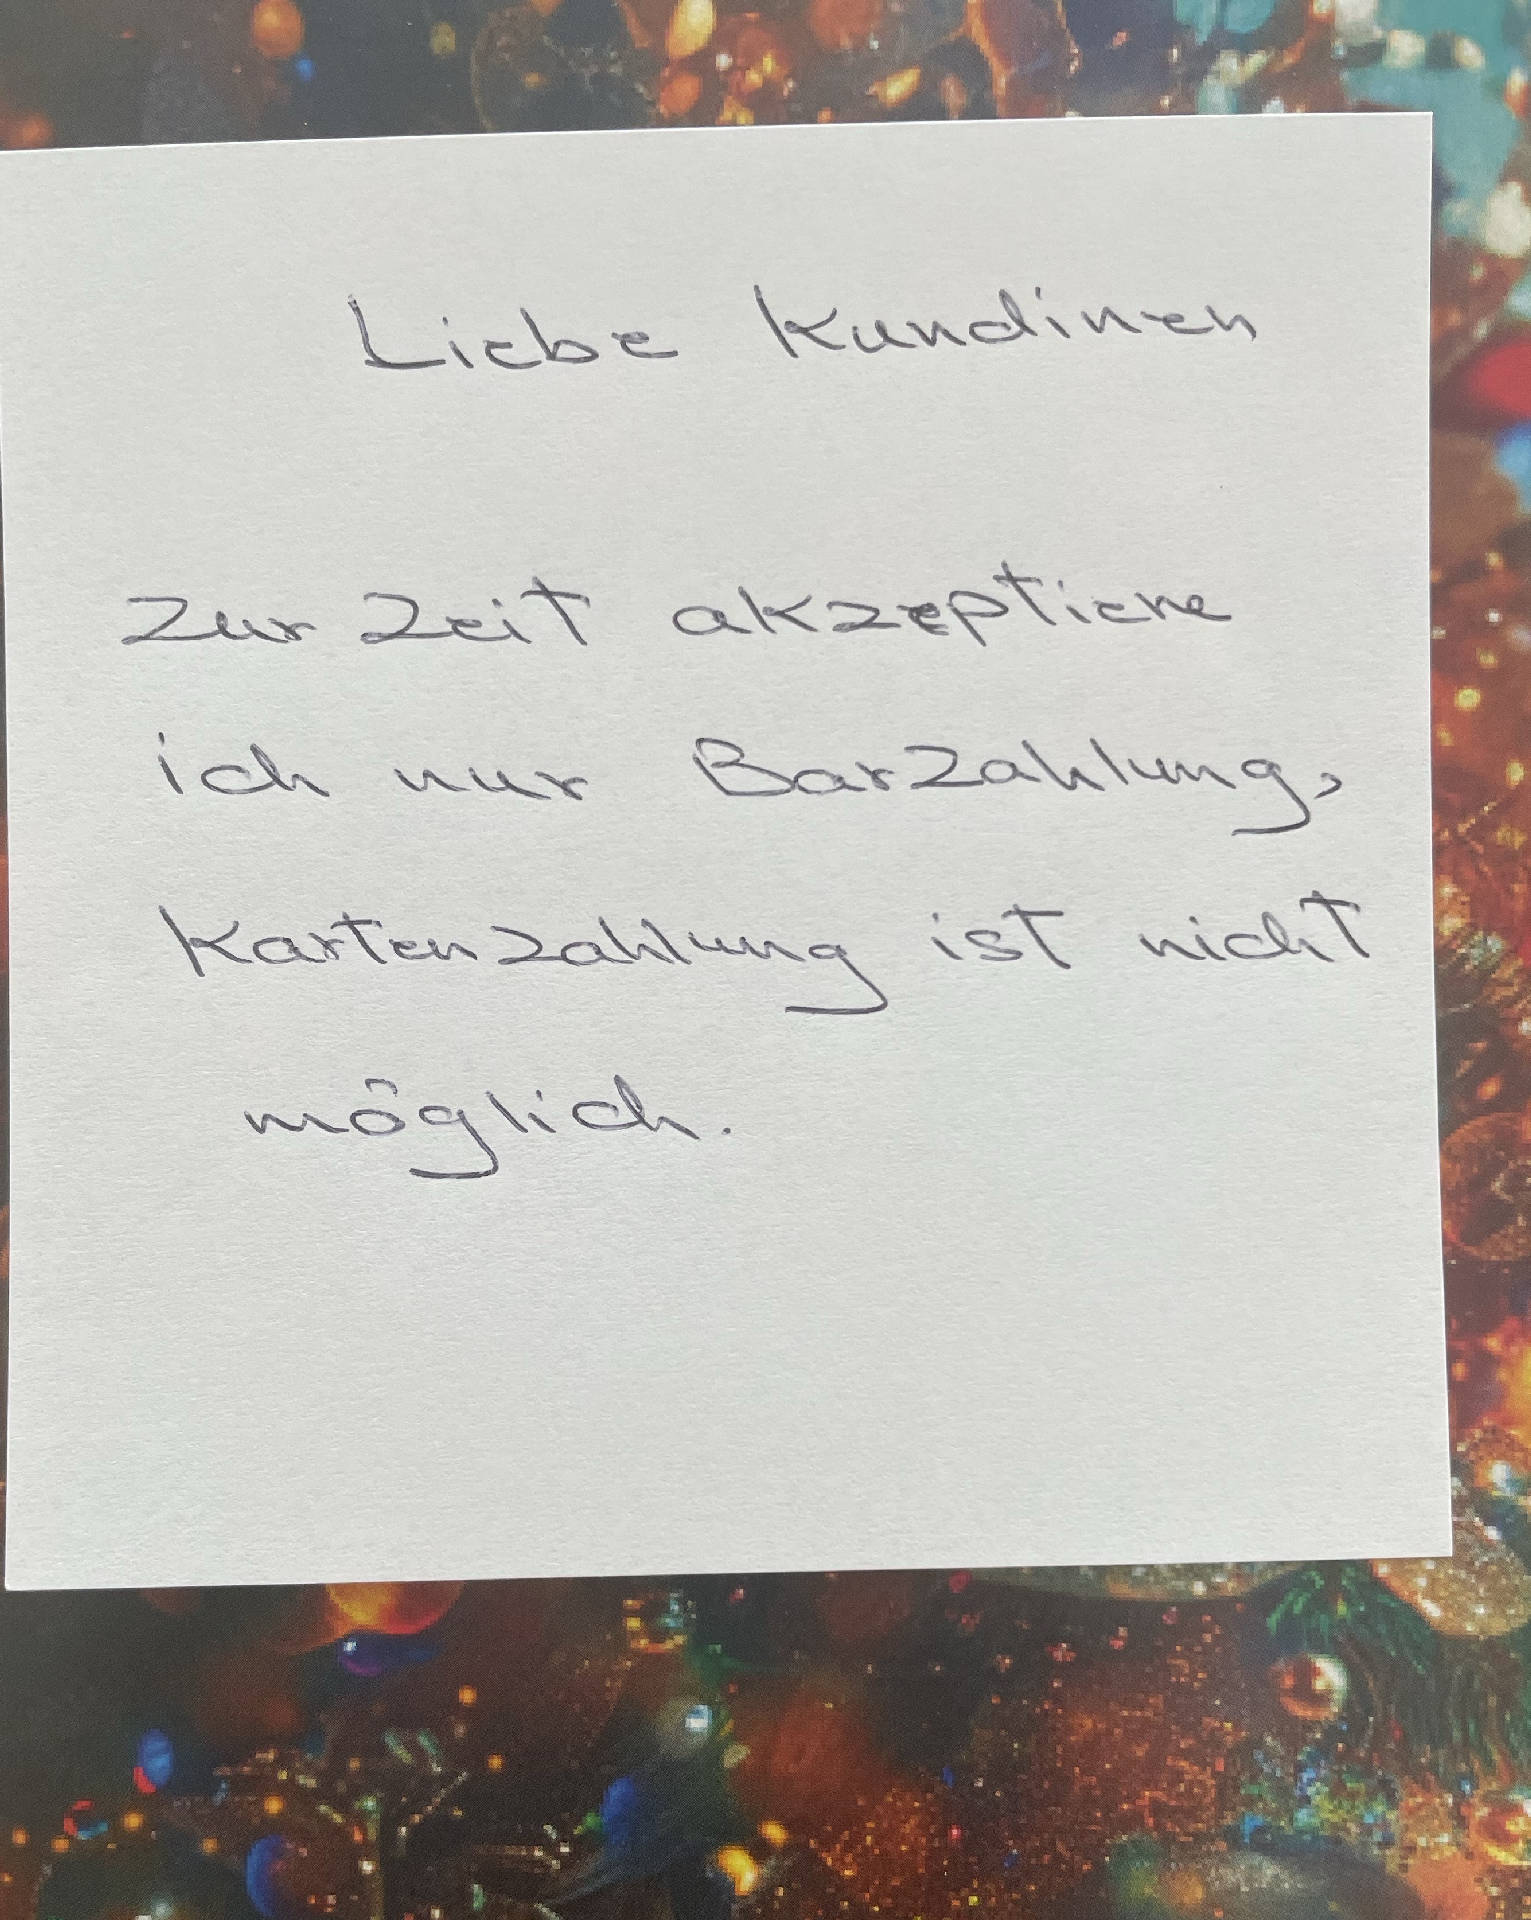 Liebe Kundinen
Zur Zeit akzeptiere
ich nur Barzahlung,
Kartenzahlung ist nicht
möglich.